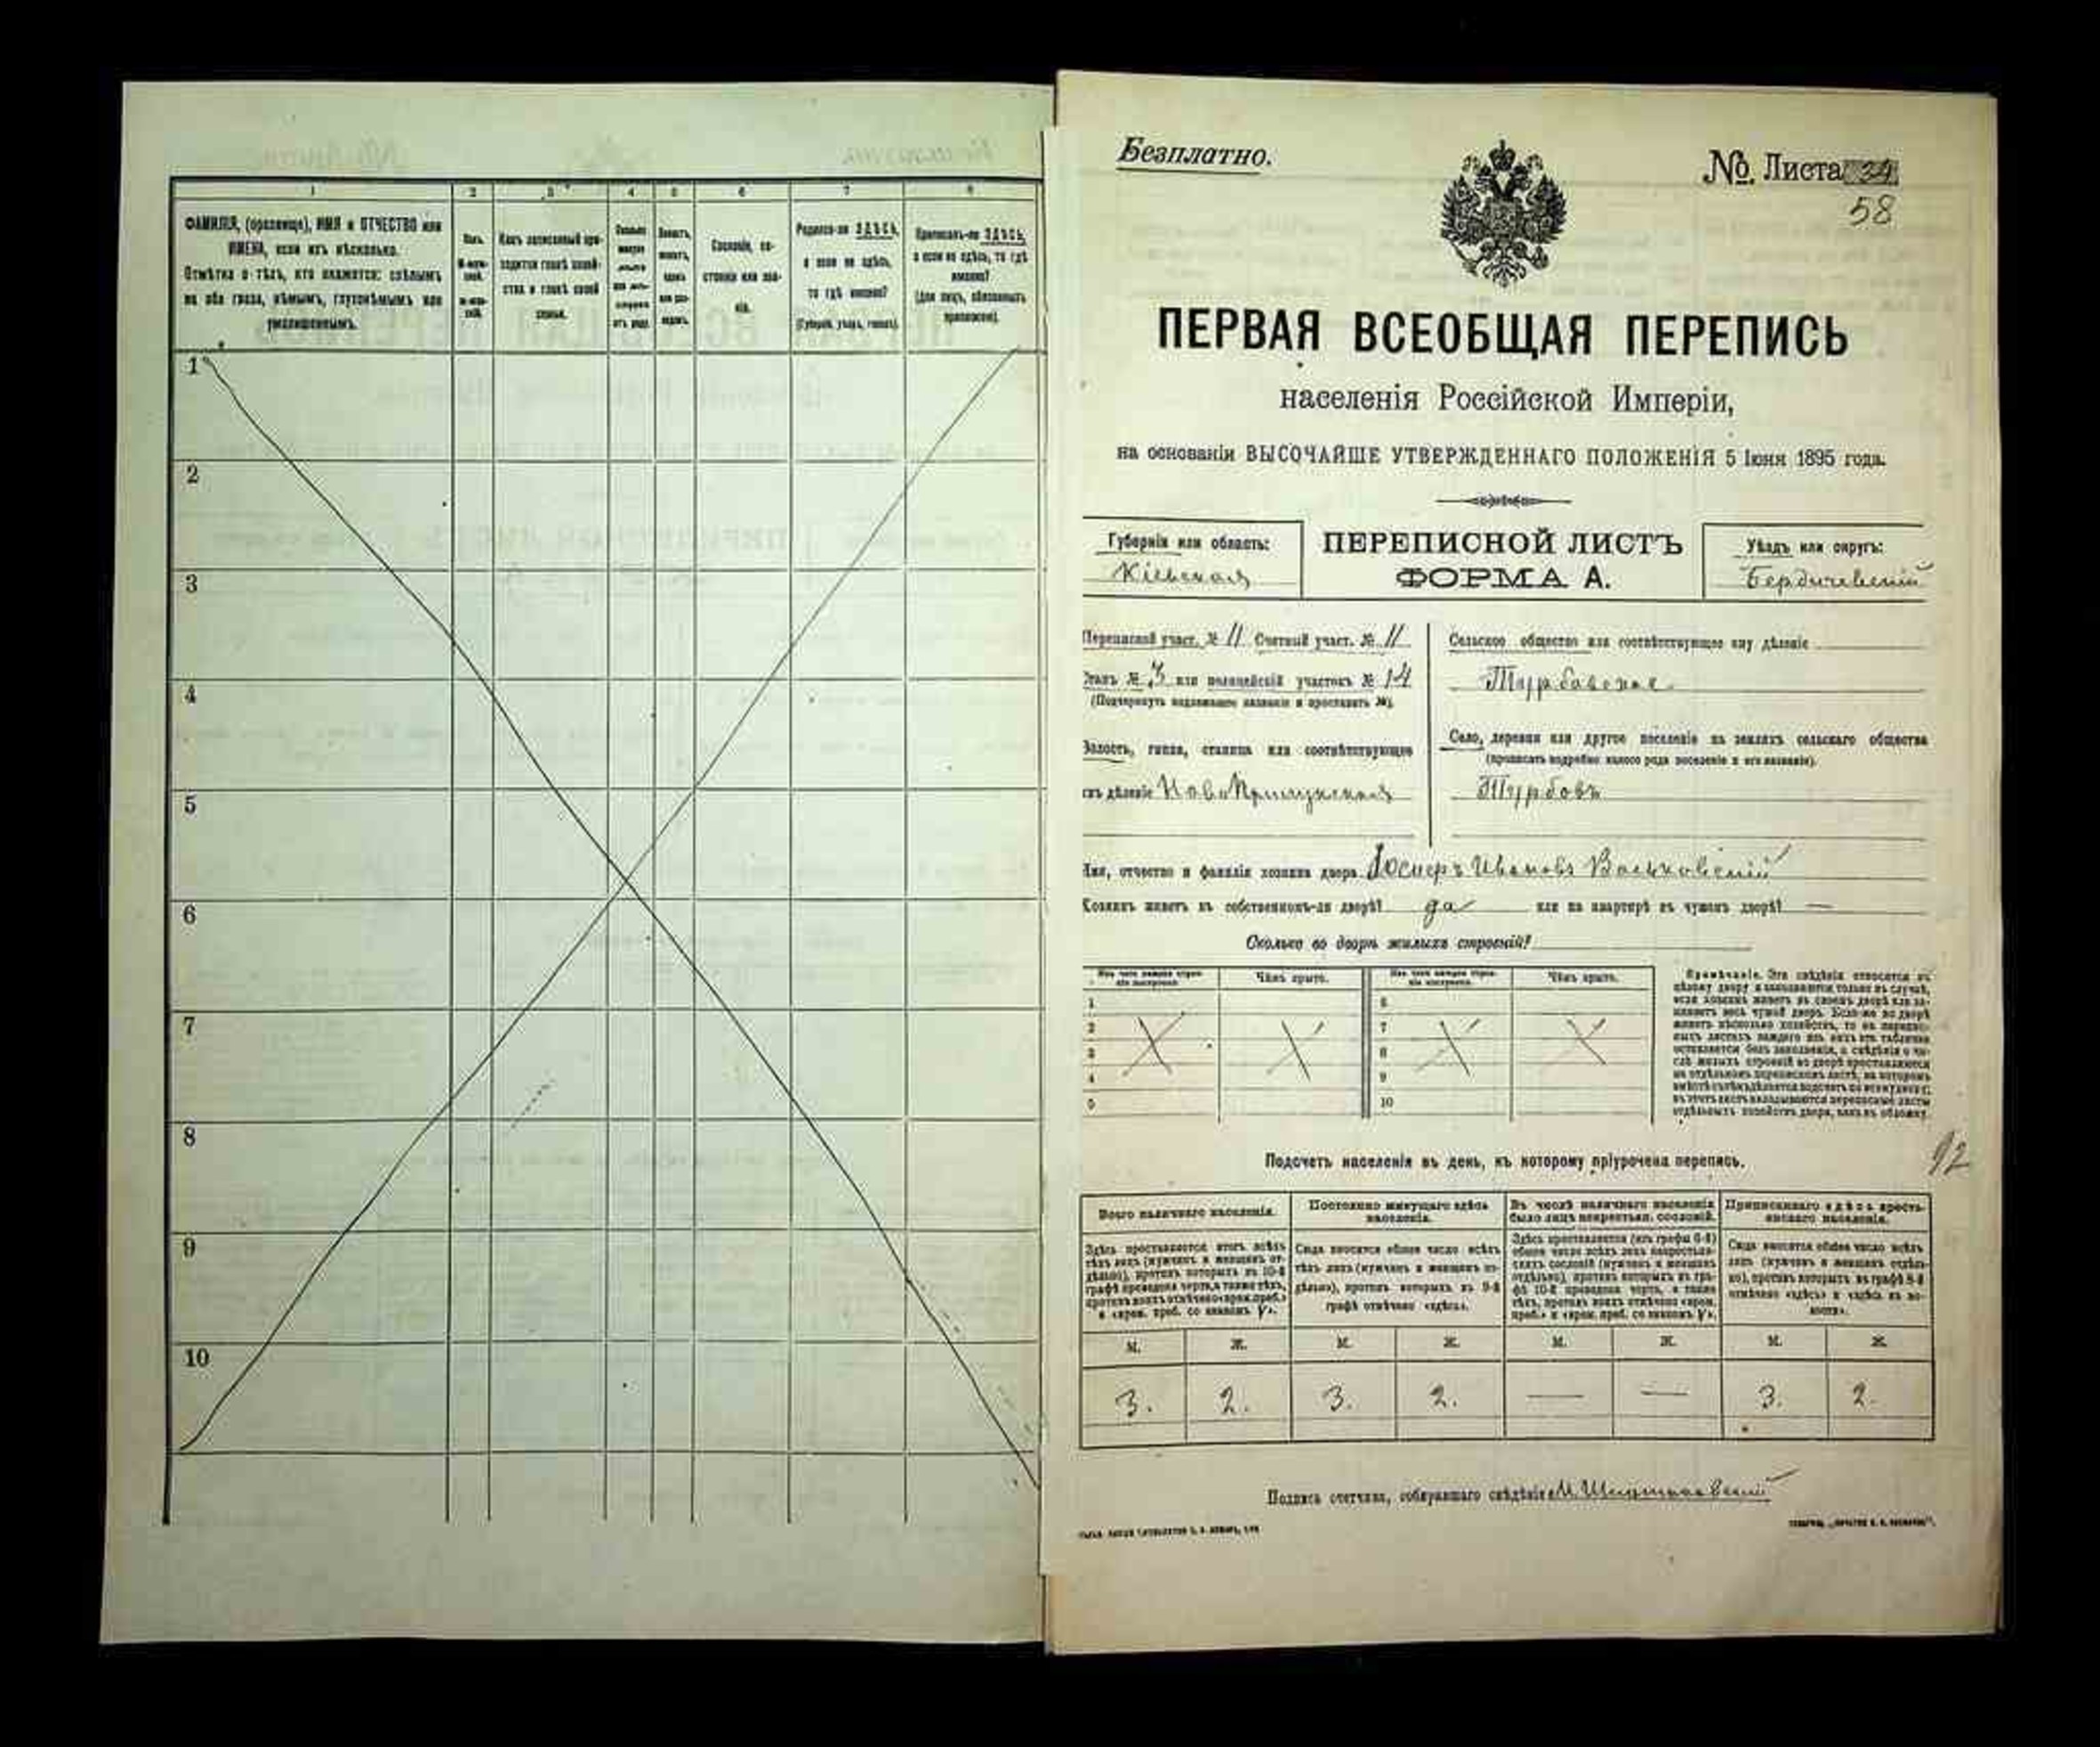 1 2 3 4 5 6 7 8
ФАМИЛІЯ, (прозвище), ИМЯ и ОТЧЕСТВО или
ИМЕНА, если ихъ нѣсколько.
Отмѣтка о тѣхъ, кто окажется: слѣпымъ
на оба глаза, нѣмымъ, глухонѣмымъ или
умалишеннымъ.
Полъ.
Какъ записанный при-
ходится главѣ хозяй-
ства и главѣ своей
семьи.
Сословіе, со-
стояніе или зва-
ніе.
Родился-ли ЗДѢСЬ,
а если не здѣсь,
то гдѣ именно?
(Губернія, уѣздъ, городъ).
Приписанъ-ли ЗДѢСЬ,
а если не здѣсь, то гдѣ
именно?
(Для лицъ, обязанныхъ
припискою).
1
2
3
4
5
6
7
8
9
10
Безплатно.
№ Листа 34
58
ПЕРВАЯ ВСЕОБЩАЯ ПЕРЕПИСЬ
населенія Россійской Имперіи,
на основаніи ВЫСОЧАЙШЕ УТВЕРЖДЕННАГО ПОЛОЖЕНІЯ 5 Іюня 1895 года.
Губернія или область:
Кіевская
ПЕРЕПИСНОЙ ЛИСТЪ
ФОРМА А.
Уѣздъ или округъ:
Бердичевскій
Переписной участ. № 11 Счетный участ. № 11
Станъ № 3 или полицейскій участокъ № 14
(Подчеркнуть надлежащее названіе и проставить №).
Волость, гмина, станица или соотвѣтствующее
имъ дѣленіе НовоПрилукская
Сельское общество или соотвѣтствующее ему дѣленіе
Турбовское
Село, деревня или другое поселеніе на земляхъ сельскаго общества
(прописать подробно какого рода поселеніе и его названіе).
Турбовъ
Имя, отчество и фамилія хозяина двора Іосифъ Ивановъ Вольковскій
Хозяинъ живетъ въ собственномъ-ли дворѣ? да или на квартирѣ въ чужомъ дворѣ? —
Сколько во дворѣ жилыхъ строеній?
Изъ чего каждое строе-
ніе построено.
Чѣмъ крыто.
Изъ чего каждое строе-
ніе построено.
Чѣмъ крыто.
1 6
2 7
3 8
4 9
5 10
Примѣчаніе. Эти свѣдѣнія относятся къ
цѣлому двору и заполняются только въ случаѣ,
если хозяинъ живетъ въ своемъ дворѣ или за-
нимаетъ весь чужой дворъ. Если-же во дворѣ
живетъ нѣсколько хозяйствъ, то на перепис-
ныхъ листахъ каждаго изъ нихъ эта табличка
оставляется безъ заполненія, а свѣдѣнія о чи-
слѣ жилыхъ строеній во дворѣ проставляются
на отдѣльномъ переписномъ листѣ, на которомъ
вмѣстѣ съ тѣмъ дѣлается подсчетъ по всему двору;
въ этотъ листъ вкладываются переписные листы
отдѣльныхъ хозяйствъ двора, какъ въ обложку.
92
Подсчетъ населенія въ день, къ которому пріурочена перепись.
Всего наличнаго населенія.
Здѣсь проставляется итогъ всѣхъ
тѣхъ лицъ (мужчинъ и женщинъ от-
дѣльно), противъ которыхъ въ 10-й
графѣ проведена черта, а также тѣхъ,
противъ коихъ отмѣчено «врем. преб.»
и «врем. преб. со знакомъ V».
Постоянно живущаго здѣсь
населенія.
Сюда вносится общее число всѣхъ
тѣхъ лицъ (мужчинъ и женщинъ от-
дѣльно), противъ которыхъ въ 9-й
графѣ отмѣчено «здѣсь».
Въ числѣ наличнаго населенія
было лицъ некрестьян. сословій.
Здѣсь проставляется (изъ графы 6-й)
общее число всѣхъ лицъ некрестьян-
скихъ сословій (мужчинъ и женщинъ
отдѣльно), противъ которыхъ въ гра-
фѣ 10-й проведена черта, а также
тѣхъ, противъ коихъ отмѣчено «врем.
преб.» и «врем. преб. со знакомъ V».
Приписаннаго здѣсь кресть-
янскаго населенія.
Сюда вносится общее число всѣхъ
лицъ (мужчинъ и женщинъ отдѣль-
но), противъ которыхъ въ графѣ 8-й
отмѣчено «здѣсь» и «здѣсь въ во-
лости».
М. Ж. М. Ж. М. Ж. М. Ж.
3. 2. 3. 2. — — 3. 2.
Подпись счетчика, собиравшаго свѣдѣнія